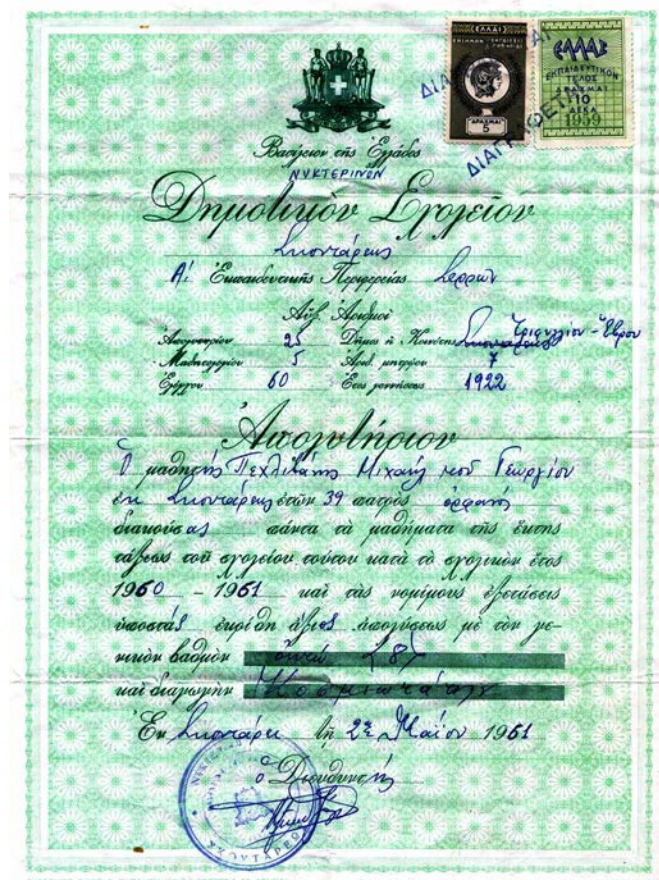 ΕΛΛΑΣ
ΔΡΑΧΜΑΙ
5
ΕΛΛΑΣ
ΕΚΠΑΙΔΕΥΤΙΚΟΝ
ΤΕΛΟΣ
ΔΡΑΧΜΑΙ
10
ΔΕΚΑ
1959
Βασίλειον τῆς Ἑλλάδος
ΝΥΚΤΕΡΙΝΟΝ
Δημοτικὸν Σχολεῖον
Σκουτάρεως
Α! Ἐκπαιδευτικῆς Περιφερείας Σερρῶν
Αὔξ. Ἀριθμοί
Ἀπολυτηρίου 25 Δῆμος ἢ Κοινότης Σκουτάρεως Τριφυλλίου - Ἕβρου
Μαθητολογίου 5 Ἀριθ. μητρῴου 7
Ἐλέγχου 60 Ἔτος γεννήσεως 1922
Ἀπολυτήριον
Ὁ μαθητής Πεχλιβάνης Μιχαήλ τοῦ Γεωργίου
ἐκ Σκουτάρεως ἐτῶν 39 πατρὸς ὀρφανός
διακούσας πάντα τὰ μαθήματα τῆς ἕκτης
τάξεως τοῦ σχολείου τούτου κατὰ τὸ σχολικὸν ἔτος
1960 - 1961 καὶ τὰς νομίμους ἐξετάσεις
ὑποστάς ἐκρίθη ἄξιος ἀπολύσεως μὲ τὸν γε-
νικὸν βαθμὸν ὀκτώ (8)
καὶ διαγωγὴν Κοσμιωτάτην
Ἐν Σκουτάρει τῇ 22 Μαΐου 1961
Ὁ Διευθυντής
ΣΚΟΥΤΑΡΕΩΣ